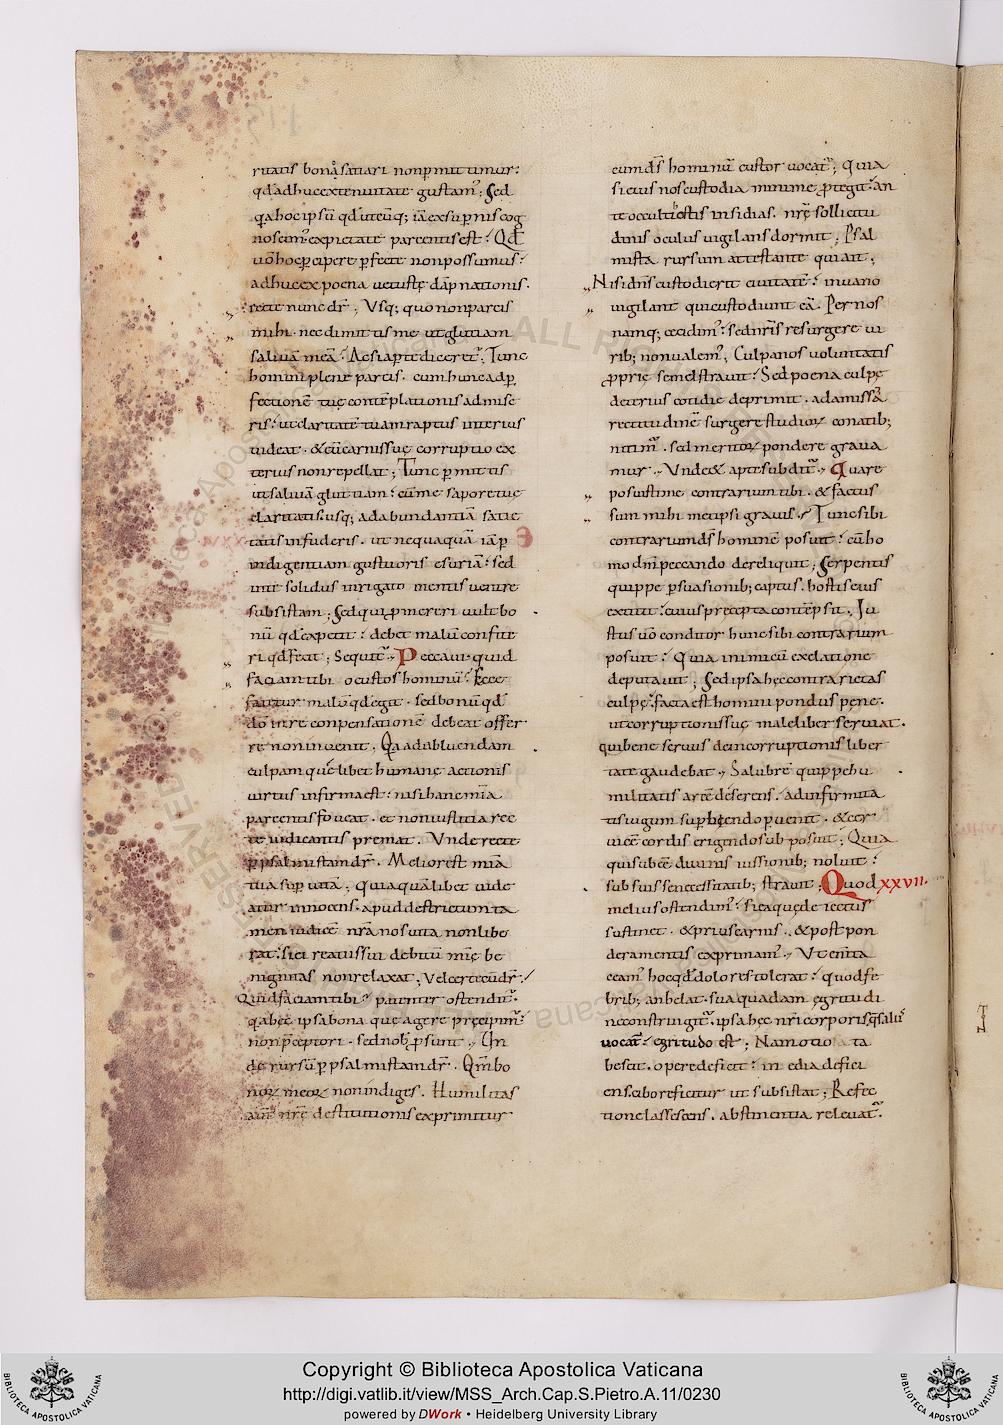 ritatis bona satiari non p̄mittimur:
qđ adhuc ex tenuitate gustam᷒; Sed
q̄a hoc ipsū qđ utcūq; iā ex sup̄nis cog
noscim᷒ ex pietate parcentis est: Qđ
uō hoc p̄cipere p̄fecte non possumus:
adhuc ex poena uetustę dāpnationis.
recte nunc dr̄; Vsq; quo non parcis
mihi. nec dimittis me ut glutiam
saliuā meā: Ac si ap̄te diceret᷒; Tunc
homini plene parcis. cum hunc ad p̄
fectionē tuę contēplationis admise
ris: ut claritatē tuam raptus interius
uideat. & eū carnis suę corruptio ex
terius non repellat; Tunc p̄mittis
ut saliuā glutiam: cū me sapore tuę
claritatis. usq; ad abundantiā satie
tatis infuderis. ut nequaquā iā p̄
indigentiam gustu oris esuriā: sed
inte solidus irrigato mentis uentre
subsistam; Sed qui p̄mereri uult bo
nū qđ expetit: debet malū confite
ri qđ fecit; Sequit᷒. Peccaui. quid
faciam tibi o custos hominū: Ecce
fatetur malū qđ egit. sed bonū qđ
dō in re conpensationē debeat offer
re non inuenit. Q̄a ad abluendam
culpam quę libet humanę actionis
uirtus infirma est: nisi hanc m̄ia
parcentis foueat. et non iustitia rec
te iudicantis premat. Vnde recte
p̄ psalmistam dr̄. Melior est m̄ia
tua sup̄ uitā; Quia quālibet uide
atur innocens. apud districtum ta
men iudicē nr̄a nos uita non libe
rat: si ei reatus sui debitū m̄ię be
nignitas non relaxat; Vel certe cū dr̄:
Quid faciam tibi? patenter ostendit᷒.
q̄a hęc ipsa bona quę agere pręcipim᷒:
non p̄ceptori. sed nob̄ p̄sunt. Vn
de rursū p̄ psalmistam dr̄. Qm̄ bo
noꝝ meoꝝ non indiges. Humilitas
aūt nr̄ę destitutionis exprimitur
cum ds̄ hominū custos uocat᷒; Quia
si eius nos custodia minime p̄tegit: an
te occulti hostis insidias. nr̄ę sollicitu
dinis oculus uigilans dormit; Psal
mista rursum attestante qui ait;
Nisi dn̄s custodierit ciuitatē: in uano
uigilant qui custodiunt eā. Per nos
namq; cecidim᷒: sed nr̄is resurgere ui
rib; non ualem᷒; Culpa nos uoluntatis
proprię semel strauit: Sed poena culpę
deterius cotidie deprimit. ad amissā
rectitudinē surgere studioꝝ conatib;
nitim᷒. sed meritoꝝ pondere graua
mur. Vnde & apte subdit᷒. Quare
posuisti me contrarium tibi. & factus
sum mihi met ipsi grauis. Tunc sibi
contrarium ds̄ hominē posuit: cū ho
mo dm̄ peccando dereliquit; Serpentis
quippe p̄suasionib; captus. hostis eius
extitit: cuius precepta contēpsit. Iu
stus uō conditor hunc sibi contrarium
posuit: Quia inimicū ex elatione
deputauit; Sed ipsa hęc contrarietas
culpę: facta est homini pondus penę.
ut corruptioni suę male liber seruiat.
qui bene seruus de incorruptionis liber
tate gaudebat. Salubrē quippe hu
militatis artē deserens. ad infirmita
tis iugum sup̄biendo p̄uenit. & cer
uicē cordis erigendo sub posuit; Quia
qui subēē diuinis iussionib; noluit:
sub suis se necessitatib; strauit; Quod xxvii.
melius ostendim᷒: si ea quę deiectus
sustinet. & prius carnis. & post pon
deramentis exprimam᷒. Vt enī ta
ceam᷒ hoc qđ dolores tolerat: quod fe
brib; anhelat. sua quadam ęgritudi
ne constringit᷒. ipsa hęc nr̄i corporis q̄ salus
uocat᷒: egritudo est; Nam otio ta
bescit. opere deficit: inedia defici
ens. cibo reficitur ut subsistat; Refec
tione lassescens. abstinentia releuat᷒.
Copyright © Biblioteca Apostolica Vaticana
http://digi.vatlib.it/view/MSS_Arch.Cap.S.Pietro.A.11/0230
powered by DWork • Heidelberg University Library